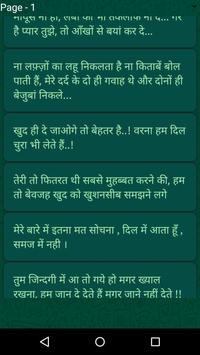 Page - 1
मायूस मा हो, लबों को भी तकलीफ ना दे... गर
है प्यार तुझे, तो आँखों से बयां कर दे...
ना लफ़्ज़ों का लहू निकलता है ना किताबें बोल
पाती हैं, मेरे दर्द के दो ही गवाह थे और दोनों ही
बेजुबां निकले...
खुद ही दे जाओगे तो बेहतर है..! वरना हम दिल
चुरा भी लेते हैं..!
तेरी तो फितरत थी सबसे मुहब्बत करने की, हम
तो बेवजह खुद को खुशनसीब समझने लगे
मेरे बारे में इतना मत सोचना , दिल में आता हूँ ,
समज में नही ।
तुम जिन्दगी में आ तो गये हो मगर ख्याल
रखना, हम जान दे देते हैं मगर जाने नहीं देते !!